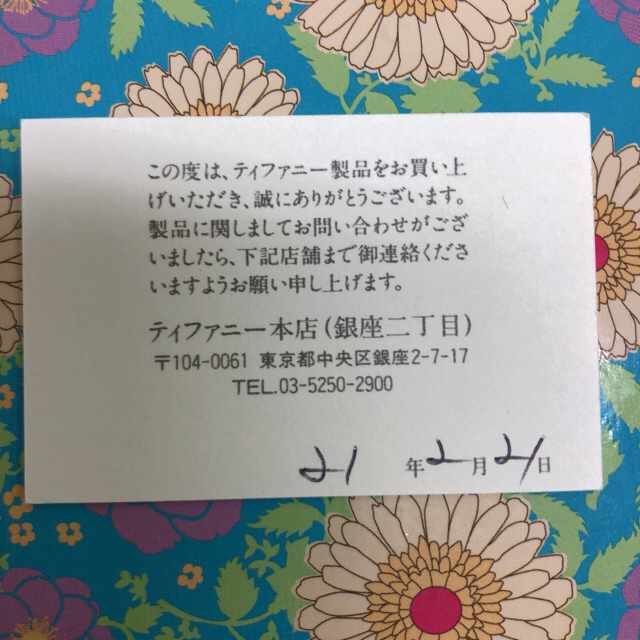 この度は、ティファニー製品をお買い上
げいただき、誠にありがとうございます。
製品に関しましてお問い合わせがござ
いましたら、下記店舗まで御連絡くださ
いますようお願い申し上げます。
ティファニー本店(銀座二丁目)
〒104-0061 東京都中央区銀座2-7-17
TEL.03-5250-2900
21 年 2 月 21 日